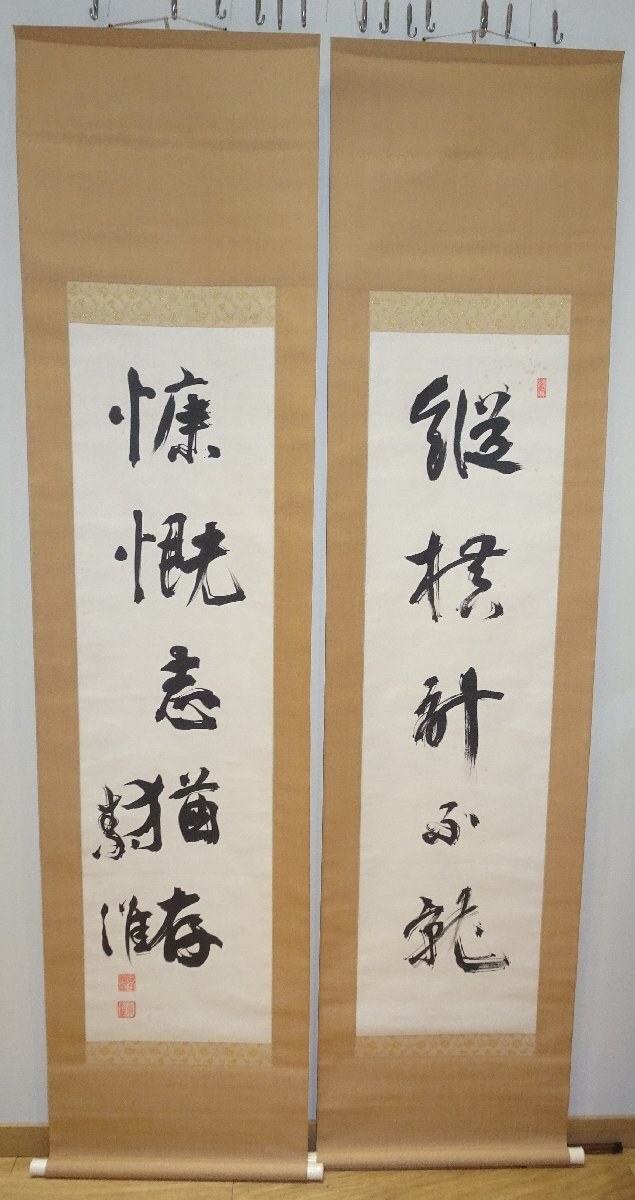 縱横計不就
慷慨志猶存